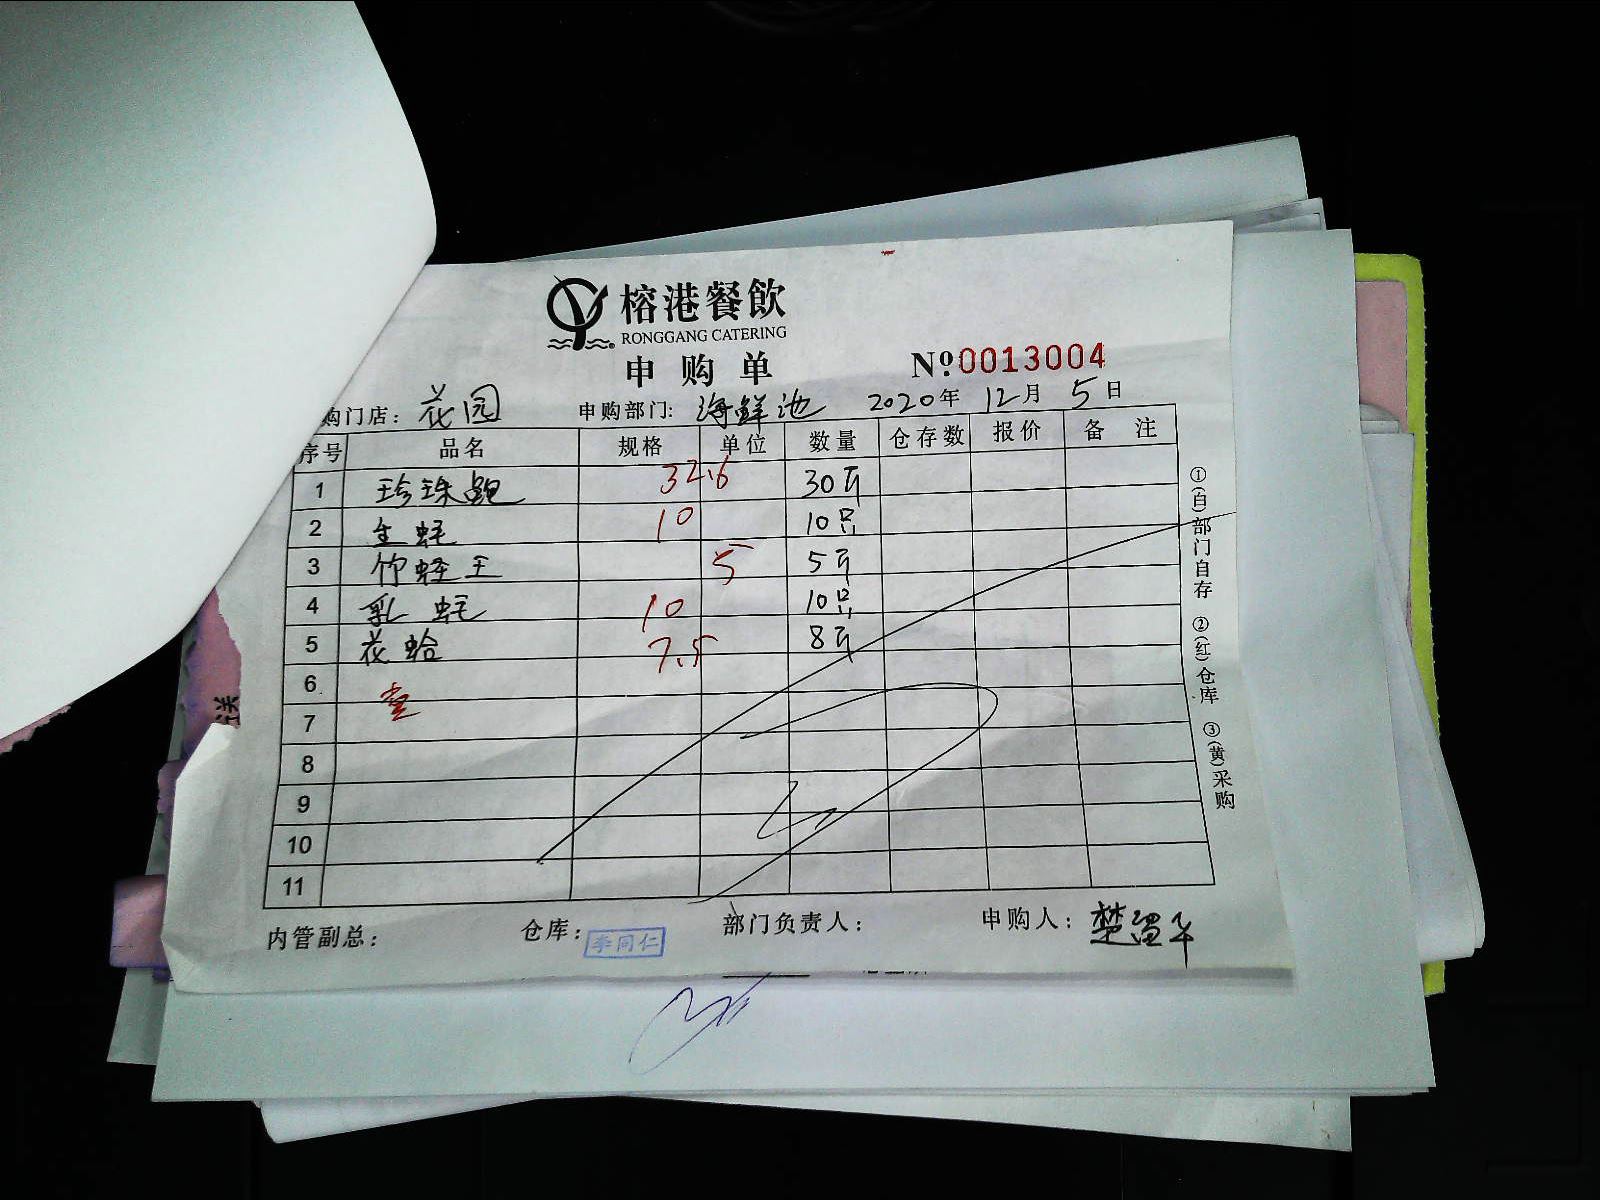 榕港餐飲
RONGGANG CATERING
申购单 №0013004
购门店：花园 申购部门：海鲜池 2020年12月5日
序号 品名 规格 单位 数量 仓存数 报价 备注
1 珍珠鲍 32.6 30斤
2 生蚝 10 10只
3 竹蛏王 5 5斤
4 乳蚝 10 10只
5 花蛤 7.5 8斤
6
7
8
9
10
11
内管副总： 仓库：李同仁 部门负责人： 申购人：楚留华
①(白)部门自存 ②(红)仓库 ③(黄)采购